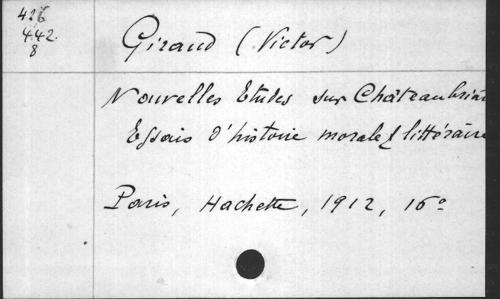 426
442.
8
Giraud (Victor)
Nouvelles Etudes sur Châteaubriand
Essais d'histoire morale & littéraire
Paris, Hachette, 1912, 16º